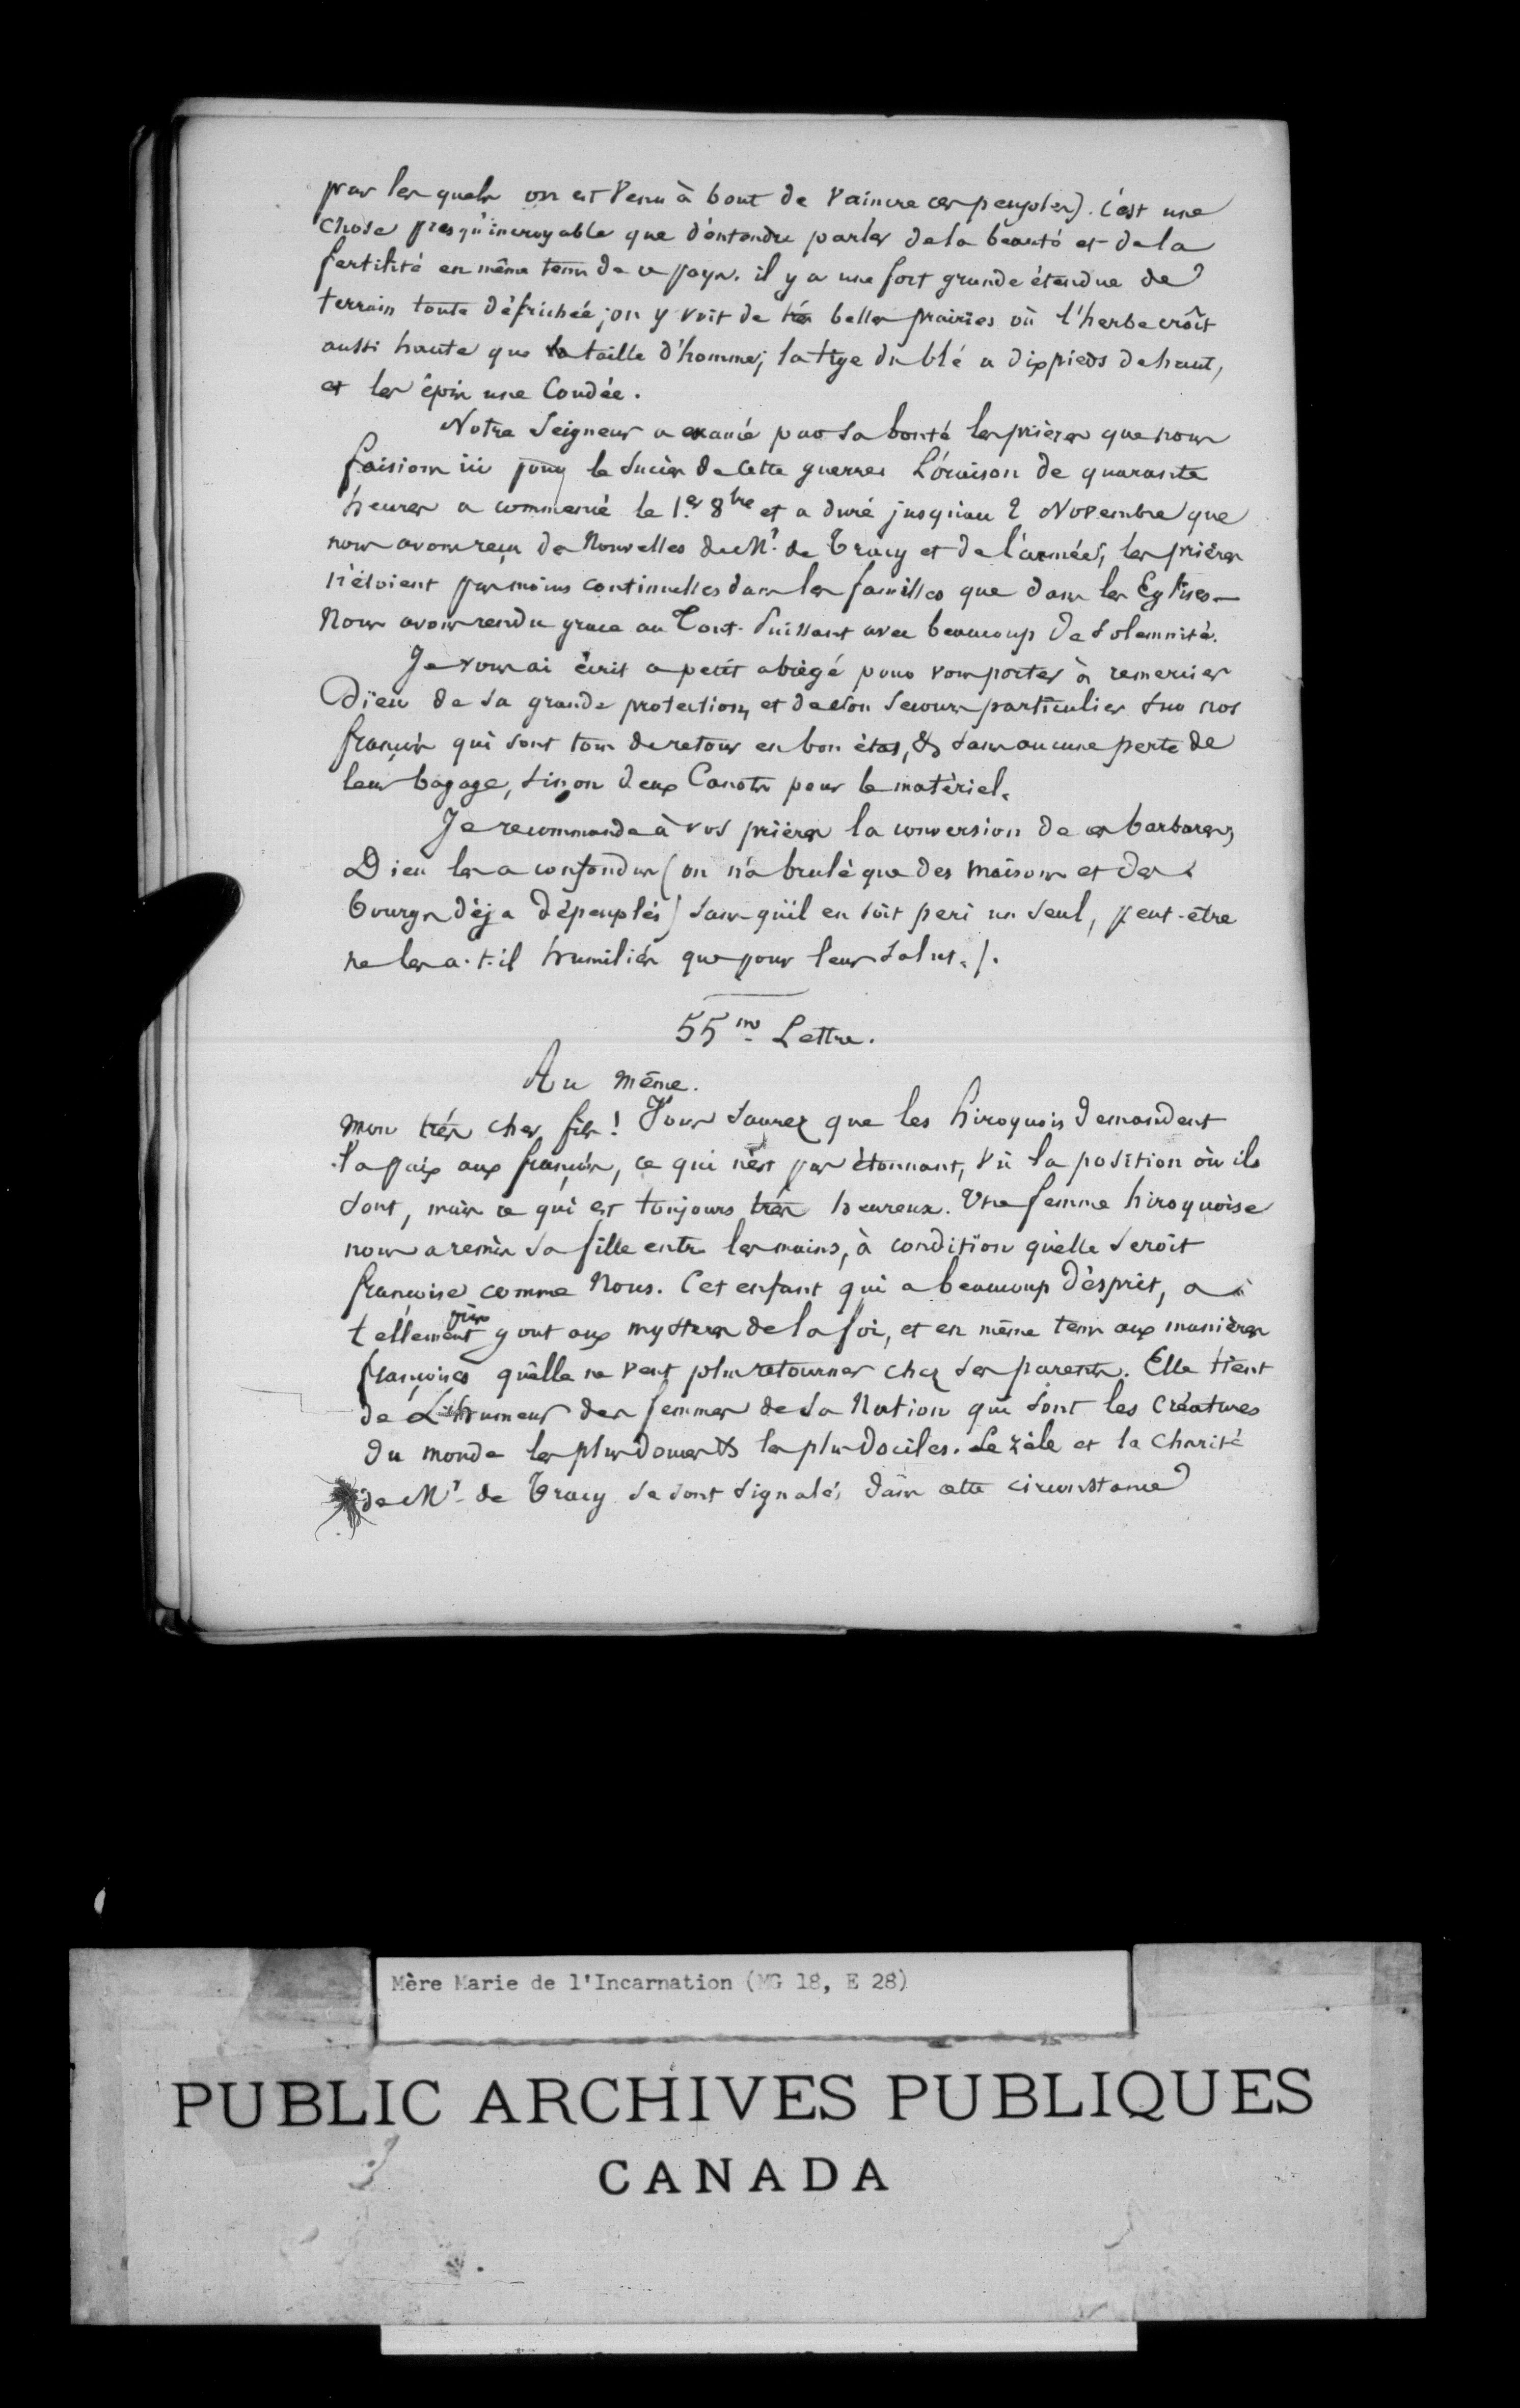 par lesquels on est venu à bout de vaincre ces peuples). c'est une
chose presqu'incroyable que d'entendre parler dela beauté et dela
fertilité en même tems de ce pays. il y a une fort grande étendue de
terrain toute défrichée; on y voit de très belles prairies où l'herbe croît
aussi haute que la taille d'homme; la tige du blé a dix pieds de haut,
et les épis une Coudée.
Notre Seigneur a exaucé par sa bonté les prières que nous
faisions ici pour le succès de cette guerre. L'oraison de quarante
heures a commencé le 1.er 8bre et a duré jusqu'au 2 Novembre que
nous avons reçu de Nouvelles de Mr. de Tracy et de l'armée; les prières
n'étoient pas moins continuelles dans les familles que dans les Eglises —
Nous avons rendu grace au Tout-Puissant avec beaucoup de solemnité.
Je vous ai écrit ce petit abrégé pour vous porter à remercier
Dieu de sa grande protection, et de son secours particulier sur nos
françois qui sont tous de retour en bon état, & sans aucune perte de
leur bagage, sinon deux Canots pour le matériel.
Je recommande à vos prières la conversion de ces barbares;
Dieu les a confondus (on n'a brulé que des maisons et des
bourgs déja dépeuplés) sans qu'il en soit peri un seul, peut-être
ne les a-t-il humiliés que pour leur salut./.
55me Lettre.
Au même.
mon très cher fils! Vous saurez que les hiroquois demandent
la paix aux françois, ce qui n'est pas étonnant, vû la position où ils
sont, mais ce qui est toujours très heureux. Une femme hiroquoise
nous a remis sa fille entre les mains, à condition qu'elle seroit
françoise comme Nous. Cet enfant qui a beaucoup d'esprit, a
tellement pris gout aux mysteres de la foi, et en même tems aux manières
françoises qu'elle ne veut plus retourner chez ses parents. Elle tient
de L'humeur des femmes de sa Nation qui sont les créatures
du monde les plus douces & les plus dociles. Le zèle et la charité
de Mr. de Tracy se sont signalés dans cette circonstance
Mère Marie de l'Incarnation (MG 18, E 28)
PUBLIC ARCHIVES PUBLIQUES
CANADA